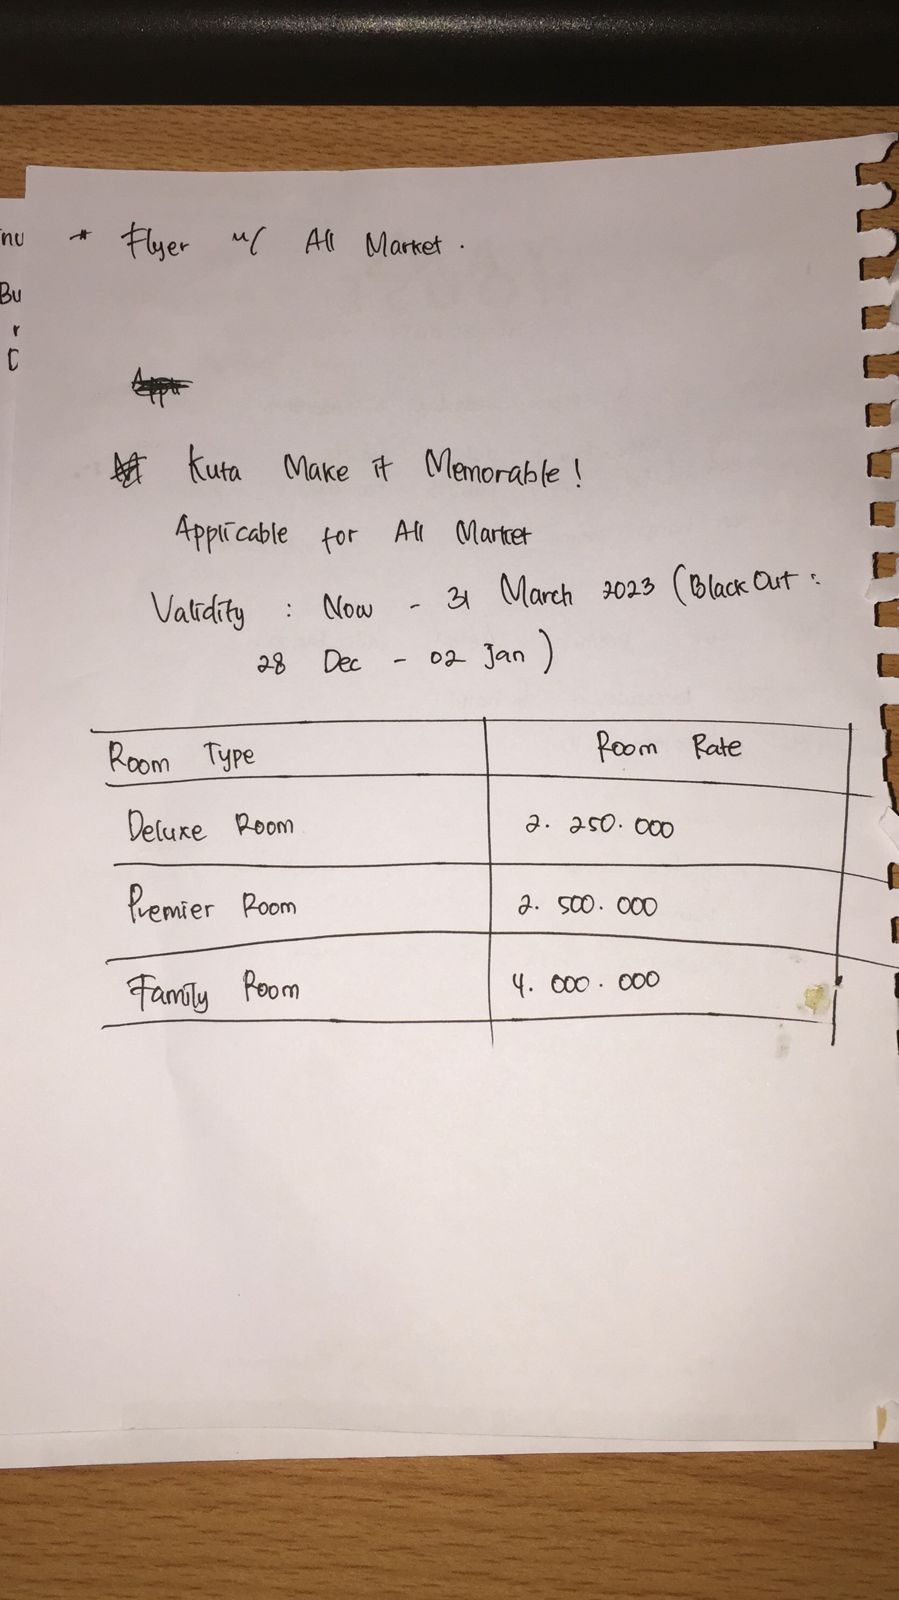 * Flyer u/ All Market.
Kuta Make it Memorable!
Applicable for All Market
Validity : Now - 31 March 2023 (Black Out :
28 Dec - 02 Jan)
Room Type Room Rate
Deluxe Room 2. 250. 000
Premier Room 2. 500. 000
Family Room 4. 000. 000
nu
Bu
r